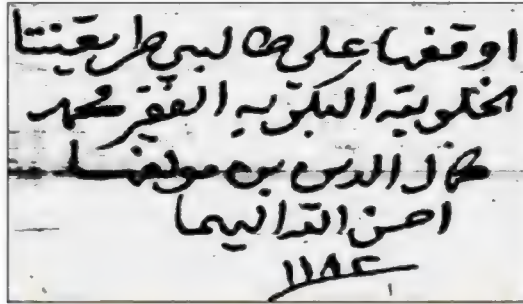 اوقفها على طالبي طريقتنا
الخلوتية البكريه الفقير محمد
كمال الدين بن مولفها
احسن الله اليهما
١١٨٢